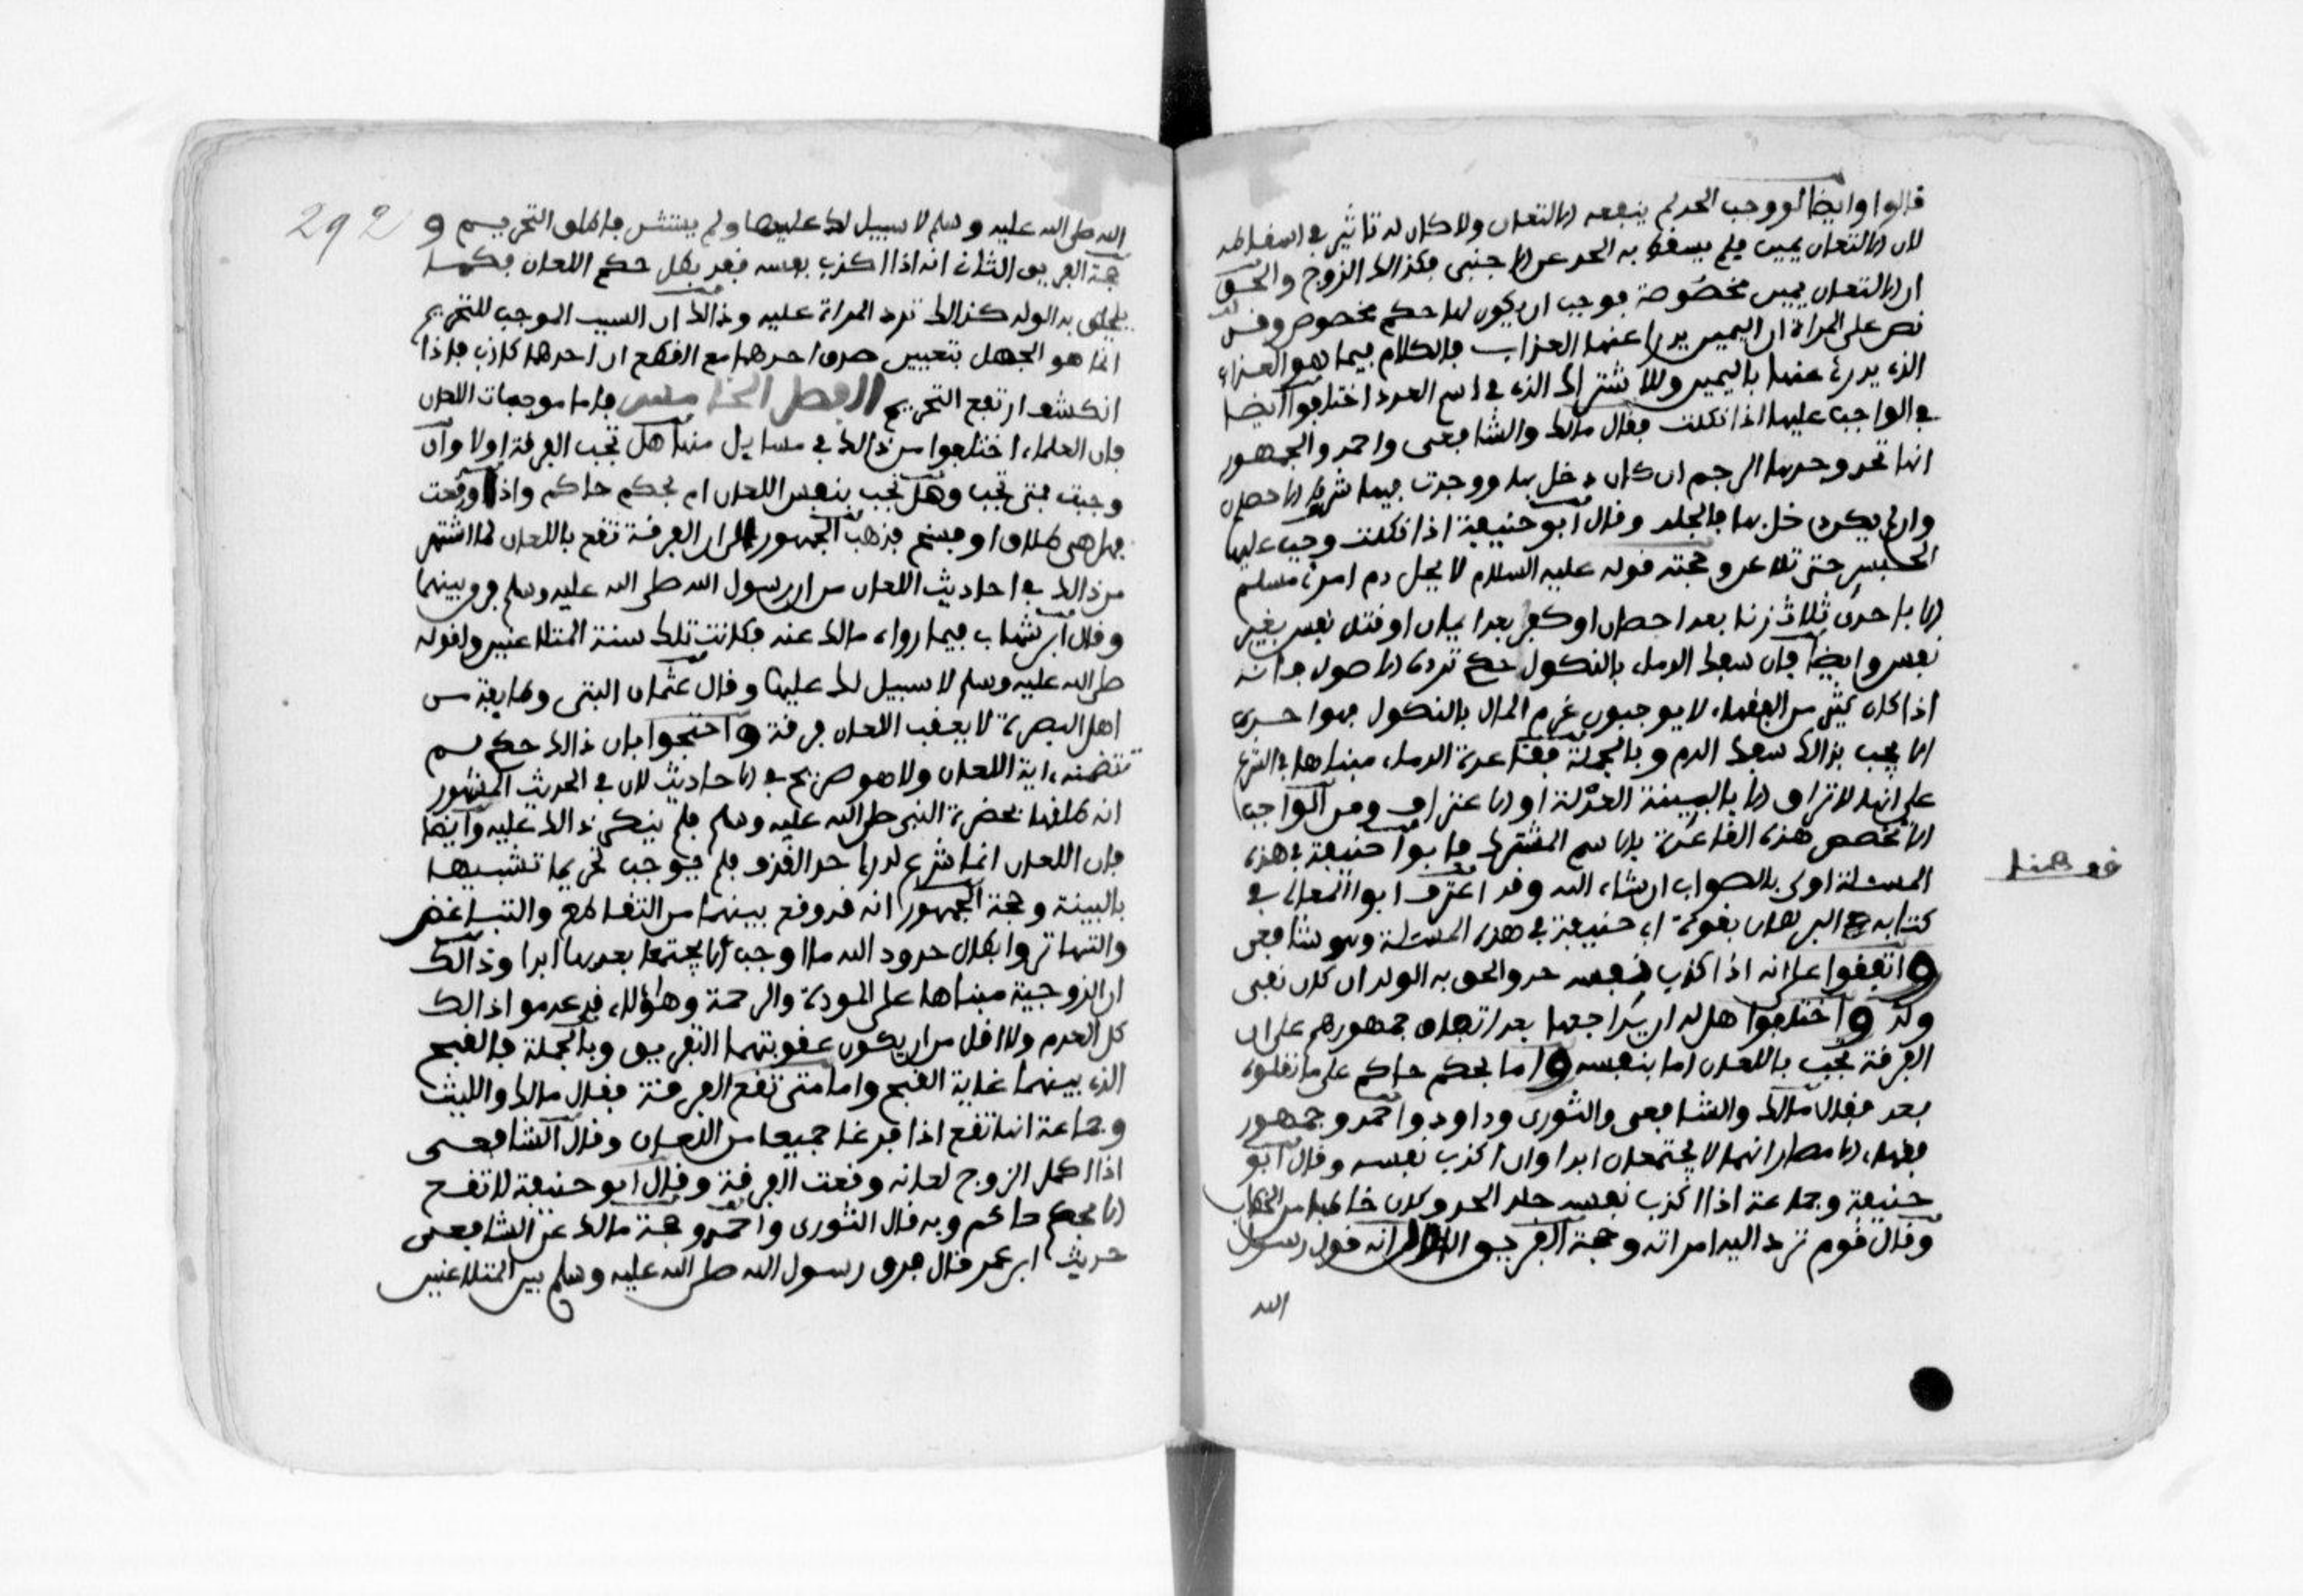 قالوا وايضا لو وجب الحد لم ينفعه الالتعان ولا كان له تاثير في اسقاطه
لان الالتعان يمين فلم يسقط به الحد عن الاجنبي فكذالك الزوج والحق
ان الالتعان يمين مخصوصة فوجب ان يكون لها حكم مخصوص وقد
نص على المراة ان اليمين يدرا عنها العذاب فالكلام فيما هو العذاب
الذي يدرئ عنها باليمين وللاشتراك الذي في اسم العدد اختلفوا ايضا
في الواجب عليها اذا نكلت فقال مالك والشافعي واحمد والجمهور
انها تحد وحدها الرجم ان كان دخل بها ووجدت فيها شروط الاحصان
وان لم يكن دخل بها فالجلد وقال ابو حنيفة اذا نكلت وجب عليها
الحبس حتى تلاعن وحجته قوله عليه السلام لا يحل دم امرئ مسلم
الا باحدى ثلاث زنا بعد احصان او كفر بعد ايمان او قتل نفس بغير
نفس وايضا فان سفك الدماء بالنكول حكم ترده الاصول فانه
اذا كان كثير من الفقهاء لا يوجبون غرم المال بالنكول فهو احرى
الا يجب بذالك سفك الدم وبالجملة فقاعدة الدماء مبناها في الشرع
على انها لا تراق الا بالبينة العدلة او الاعتراف ومن الواجب
الا تخصص هذه القاعدة بالاسم المشترك فابوا حنيفة في هذه
المسئلة اولى بالصواب ان شاء الله وقد اعترف ابوا المعالي في
كتابه البرهان بقوة ابي حنيفة في هذه المسئلة وهو شافعي
واتفقوا على انه اذا كذب نفسه حد والحق به الولد ان كان نفى
ولد واختلفوا هل له ان يراجعها بعد اتفاق جمهورهم على ان
الفرقة تجب باللعان اما بنفسه واما بحكم حاكم على ما نقلوه
بعد فقال مالك والشافعي والثوري وداود واحمد وجمهور
فقهاء الامصار انهما لا يجتمعان ابدا وان اكذب نفسه وقال ابو
حنيفة وجماعة اذا اكذب نفسه جلد الحد وكان خاطبا من الخطاب
وقال قوم ترد اليه امراته وحجة الفريق الاول انه قول رسول
الله
الله صلى الله عليه وسلم لا سبيل لك عليها ولم يستثن فاطلق التحريم و
حجة الفريق الثاني انه اذا اكذب نفسه فقد بطل حكم اللعان فكما
يلحق به الولد كذالك ترد المراة عليه وذالك ان السبب الموجب للتحريم
انما هو الجهل بتعيين صدق احدهما مع القطع ان احدهما كاذب فاذا
انكشف ارتفع التحريم الفصل الخامس فاما موجبات اللعان
فان العلماء اختلفوا من ذالك في مسايل منها هل تجب الفرقة اولا وان
وجبت فمتى تجب وهل تجب بنفس اللعان ام بحكم حاكم واذا وقعت
فهل هي طلاق او فسخ فذهب الجمهور الى ان الفرقة تقع باللعان لما اشتهر
من ذالك في احاديث اللعان من ان رسول الله صلى الله عليه وسلم فرق بينهما
وقال ابن شهاب فيما رواه مالك عنه فكانت تلك سنة المتلاعنين ولقوله
صلى الله عليه وسلم لا سبيل لك عليها وقال عثمان البتي وطايفة من
اهل البصرة لا يعقب اللعان فرقة واحتجوا بان ذالك حكم لم
تتضمنه اية اللعان ولا هو صريح في الاحاديث لان في الحديث المشهور
انه طلقها بحضرة النبي صلى الله عليه وسلم فلم ينكر ذالك عليه وايضا
فان اللعان انما شرع لدرا حد القذف فلم يوجب تحريما تشبيها
بالبينة وحجة الجمهور انه قد وقع بينهما من التقاطع والتباغض
والتهاتر وابطال حدود الله ما اوجب الا يجتمعا بعدها ابدا وذالك
ان الزوجية مبناها على المودة والرحمة وهؤلاء قد عدموا ذالك
كل العدم ولا اقل من ان يكون عقوبتهما التفريق وبالجملة فالقبح
الذي بينهما غاية القبح واما متى تقع الفرقة فقال مالك والليث
وجماعة انها تقع اذا فرغا جميعا من اللعان وقال الشافعي
اذا اكمل الزوج لعانه وقعت الفرقة وقال ابو حنيفة لا تقع
الا بحكم حاكم وبه قال الثوري واحمد وحجة مالك عن الشافعي
حديث ابن عمر قال فرق رسول الله صلى الله عليه وسلم بين المتلاعنين
292